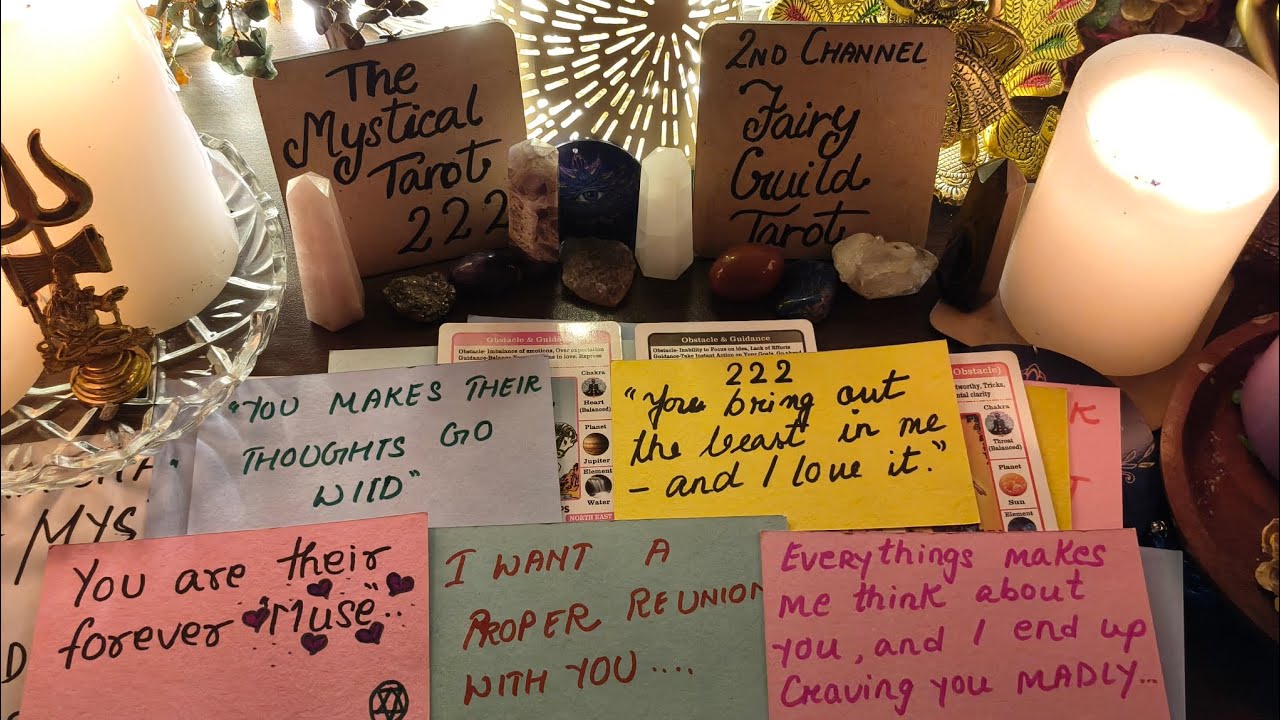 The
Mystical
Tarot
222
2ND CHANNEL
Fairy
Guild
Tarot
Obstacle & Guidance
Obstacle- Imbalance of emotions, Over expectation
Guidance-Balance
in love, Express
Chakra
Heart
(Balanced)
Planet
Jupiter
Element
Water
NORTH EAST
Obstacle & Guidance
Obstacle- Inability to Focus on Idea, Lack of Efforts
Guidance-Take Instant Action on Your Goals, Go ahead
Obstacle)
Tricks,
clarity
Chakra
Throat
(Balanced)
Planet
Sun
Element
"YOU MAKES THEIR
THOUGHTS GO
WILD"
222
"You bring out
the beast in me
- and I love it."
MYS
D
You are their
forever "Muse"..
I WANT A
PROPER REUNION
WITH YOU....
Everythings makes
me think about
you, and I end up
Craving you MADLY...